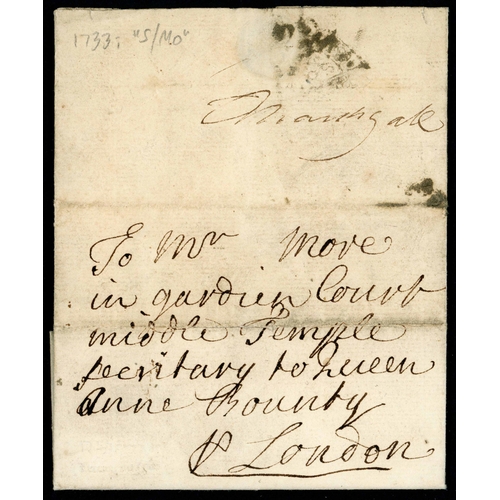 1733; "S/MO"
To Mr More
in gardien Court
middle Temple
secritary to Queen
Anne Bounty
London